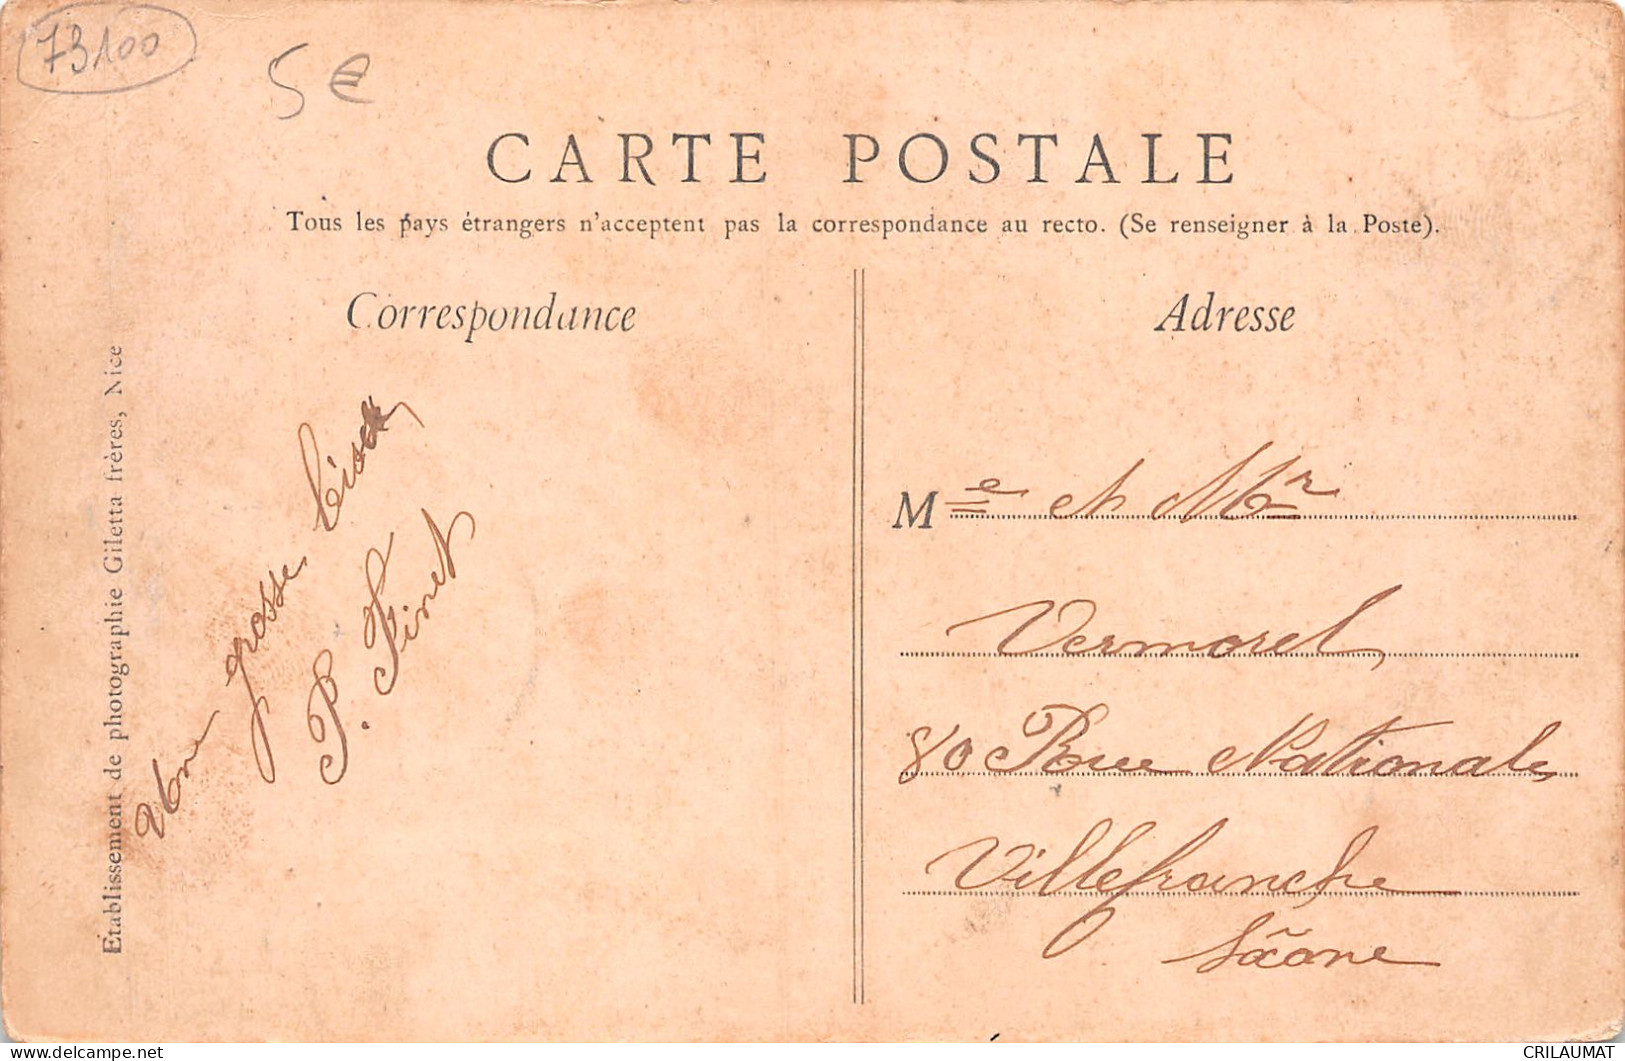 73100
5€
CARTE POSTALE
Tous les pays étrangers n'acceptent pas la correspondance au recto. (Se renseigner à la Poste).
Correspondance
Adresse
Établissement de photographie Giletta frères, Nice
grosse
P. Pinet
Me et Mr
Vermorel
80 Rue Nationale
Villefranche
Sãone
delcampe.net
CRILAUMAT